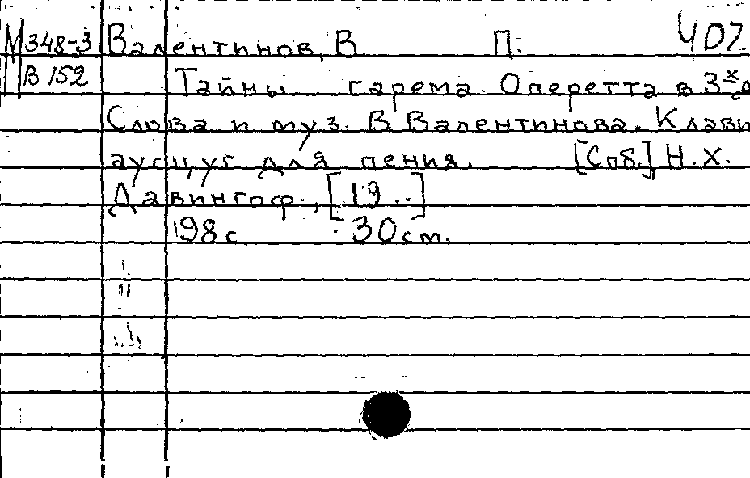 М 348-3 Валентинов, В П: 407
В 152 Тайны гарема Оперетта в 3х
Слова и муз. В Валентинова. Клави
аусцуг для пения. [Спб.] Н. Х.
Давингоф, [19..]
198 с 30 см.